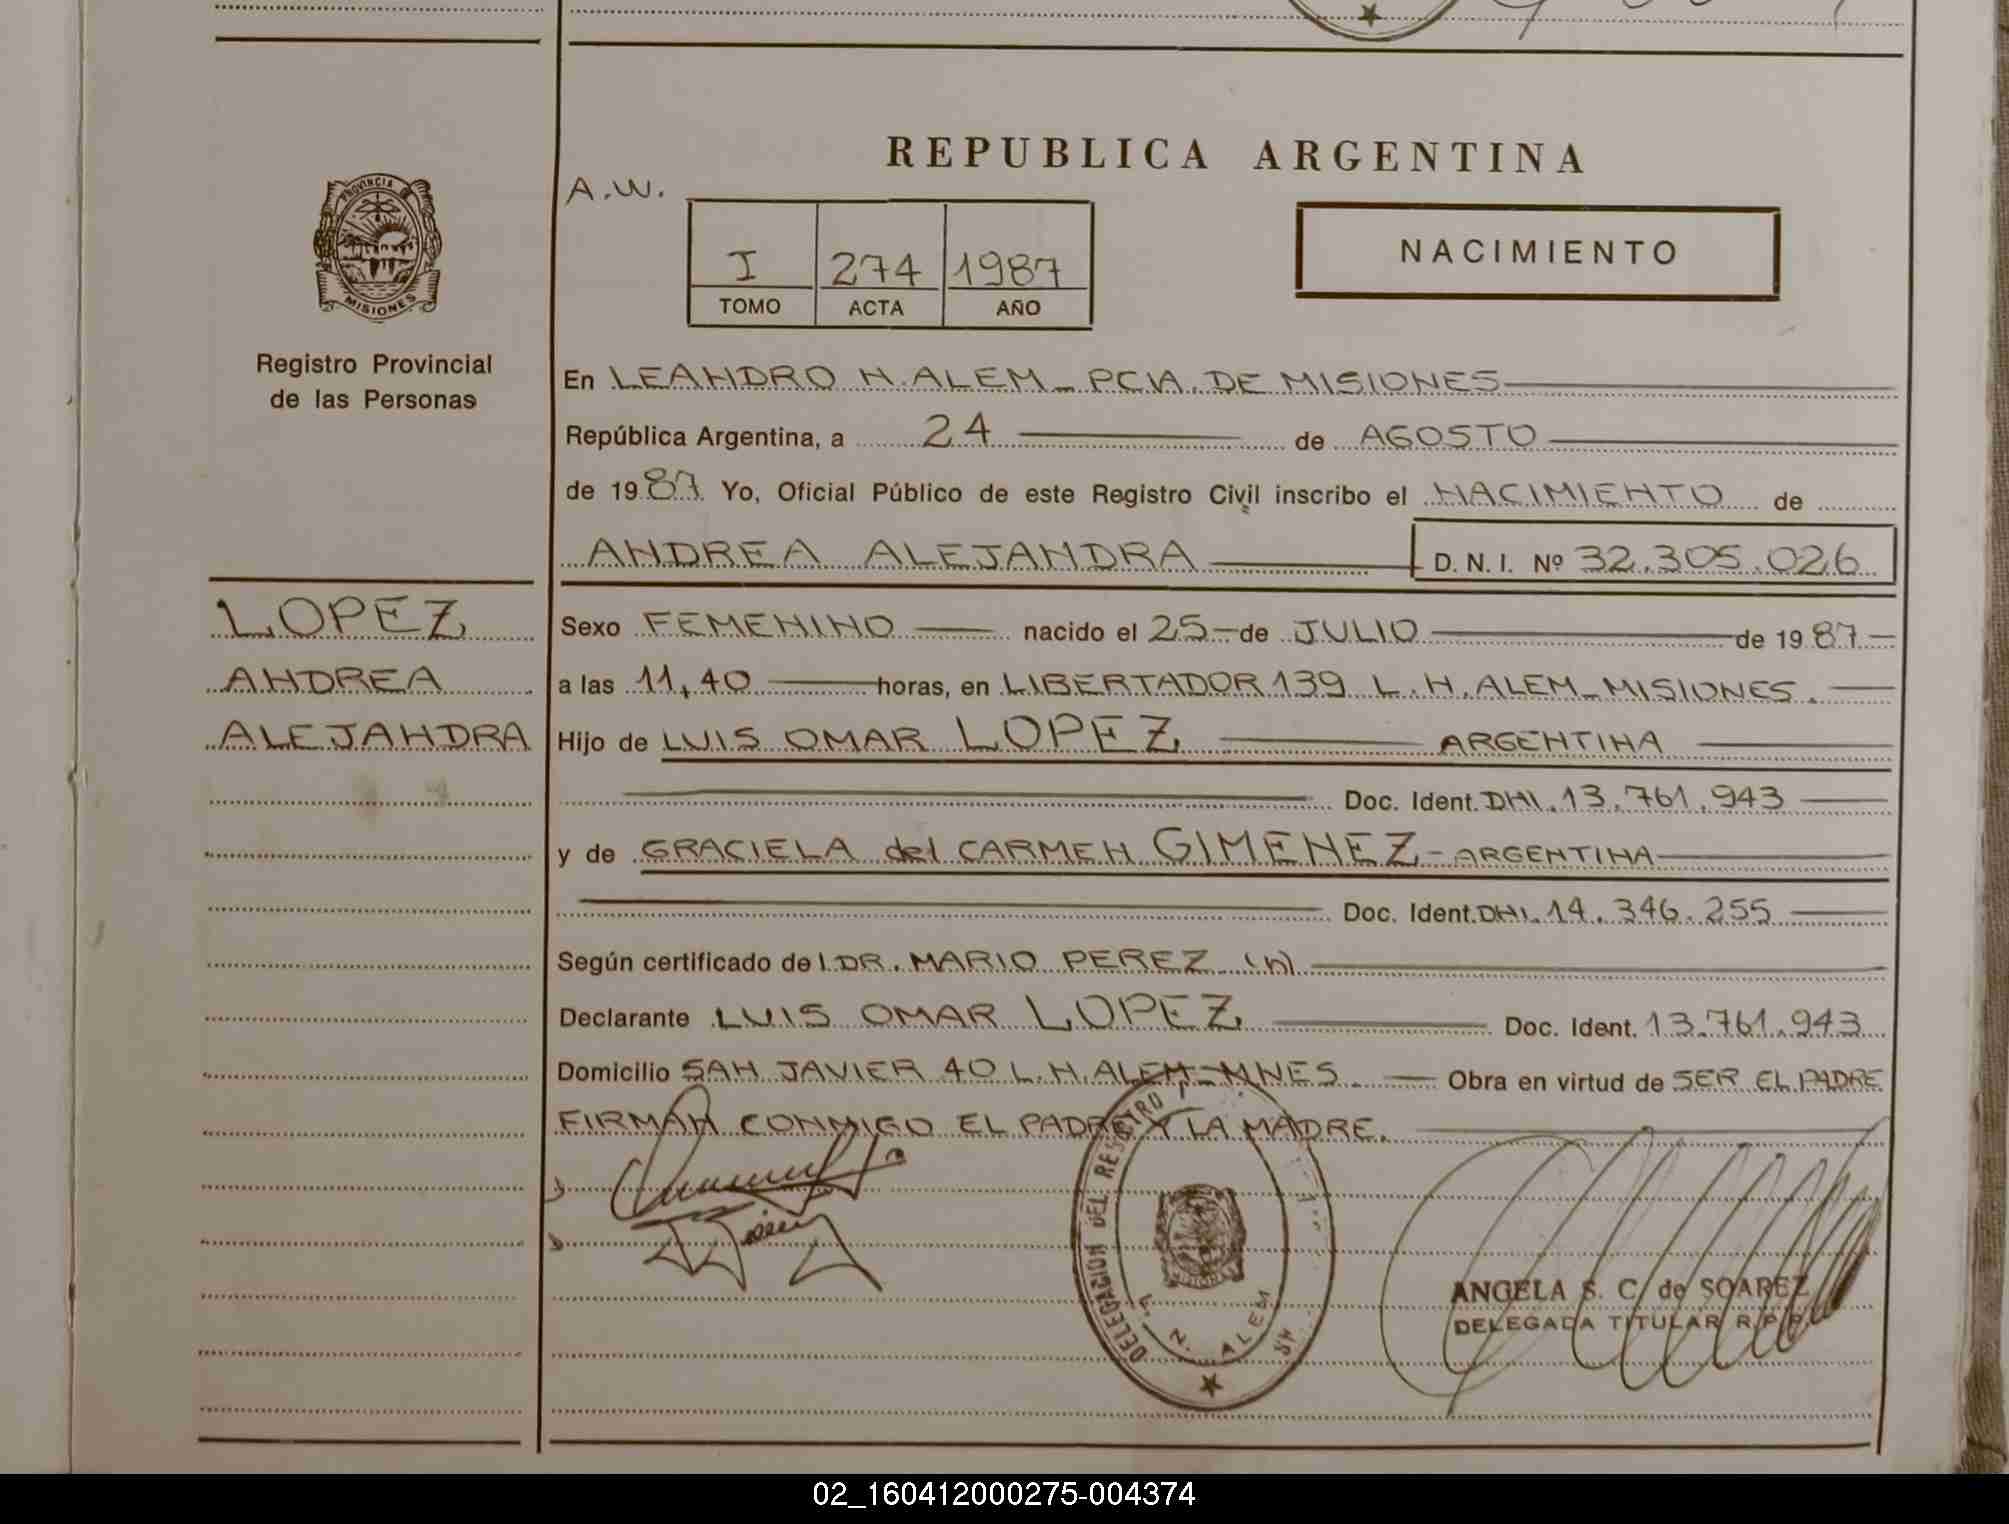 REPUBLICA ARGENTINA
A.W.
PROVINCIA
MISIONES
I 274 1987
TOMO ACTA AÑO
NACIMIENTO
Registro Provincial
de las Personas
En LEANDRO N. ALEM - PCIA. DE MISIONES
República Argentina, a 24 de AGOSTO
de 1987 Yo, Oficial Público de este Registro Civil inscribo el NACIMIENTO de
ANDREA ALEJANDRA D. N. I. Nº 32.305.026
LOPEZ
ANDREA
ALEJANDRA
Sexo FEMENINO nacido el 25 de JULIO de 1987
a las 11,40 horas, en LIBERTADOR 139 L.N. ALEM - MISIONES.
Hijo de LUIS OMAR LOPEZ ARGENTINA
Doc. Ident. DNI. 13.761.943
y de GRACIELA del CARMEN GIMENEZ - ARGENTINA
Doc. Ident. DNI. 14.346.255
Según certificado de l DR. MARIO PEREZ (h)
Declarante LUIS OMAR LOPEZ Doc. Ident. 13.761.943
Domicilio SAN JAVIER 40 L.N. ALEM - MNES. Obra en virtud de SER EL PADRE
FIRMAN CONMIGO EL PADRE Y LA MADRE.
DELEGACION DEL REGISTRO
L. N. ALEM
ANGELA S. C. de SOAREZ
DELEGADA TITULAR R.P.P.
02_160412000275-004374